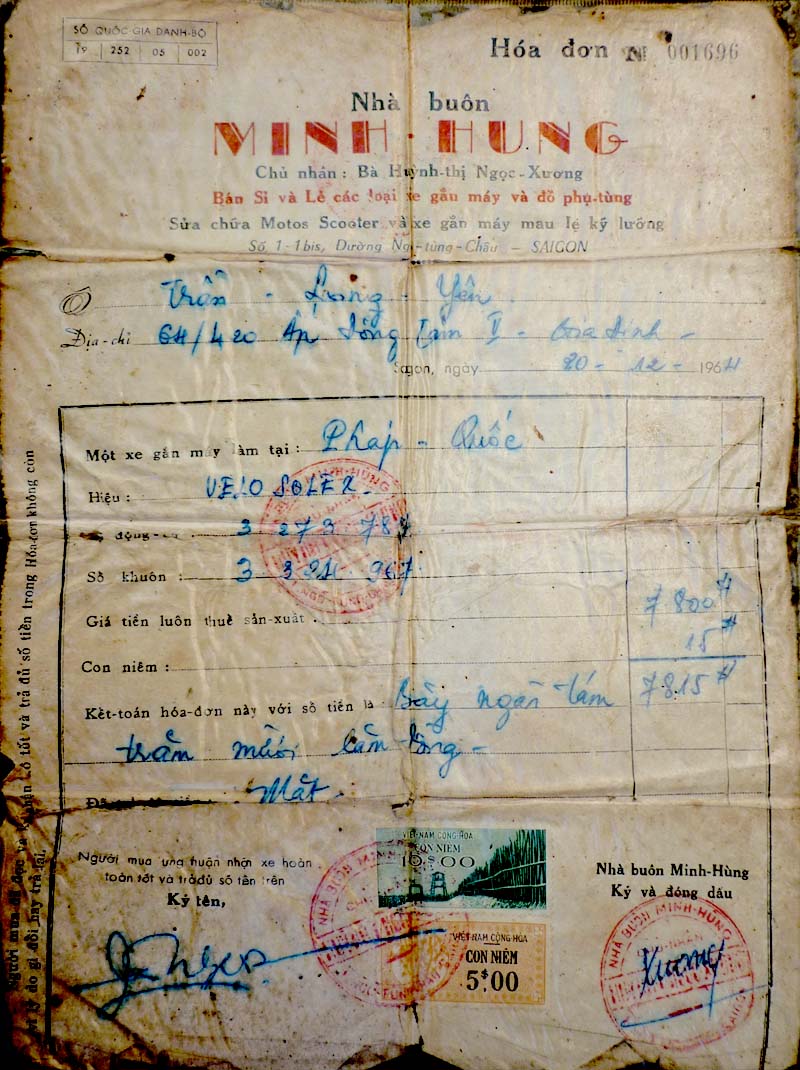 SỐ QUỐC GIA DANH-BỘ
19 252 05 002
Hóa đơn № 001696
Nhà buôn
MINH-HUNG
Chủ nhân: Bà Huỳnh-thị Ngọc-Xương
Bán Sỉ và Lẻ các loại xe gắn máy và đồ phụ-tùng
Sửa chữa Motos Scooter và xe gắn máy mau lẹ kỹ lưỡng
Số 1-1bis, Đường Ngô-tùng-Châu — SAIGON
Ô Trần - - Yên
Địa-chỉ 64/420 Ấp Đông Tâm I - Gia Định -
Saigon, ngày 20 - 12 - 1964
Một xe gắn máy làm tại: Pháp - Quốc
Hiệu: VELO SOLEX
động- 3 273 787
Số khuôn: 3 324 967
Giá tiền luôn thuế sản-xuất. 7800đ
Con niêm: 15đ
Kết-toán hóa-đơn này với số tiền là: Bảy ngàn tám 7815đ
trăm mười lăm đồng -
Mất.
Người mua ưng thuận nhận xe hoàn
toàn tốt và trả đủ số tiền trên
Ký tên,
VIỆT-NAM CỘNG-HÒA
CON NIÊM
10$00
VIỆT-NAM CỘNG-HÒA
CON NIÊM
5$00
Nhà buôn Minh-Hùng
Ký và đóng dấu
NHÀ BUÔN MINH-HÙNG
Xương
Người mua đã đọc và tốt và trả đủ số tiền trong Hóa-đơn không còn
lý do gì đổi hay trả lại.